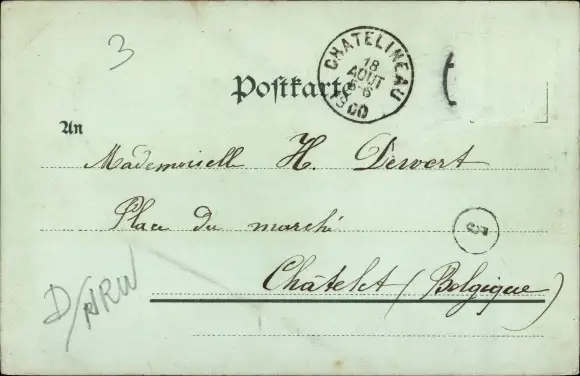 3
CHATELINEAU
18
AOUT
5-6
1900
Postkarte
An
Mademoiselle H. Dewert
Place du marché
5
Châtelet (Belgique)
D/NRW